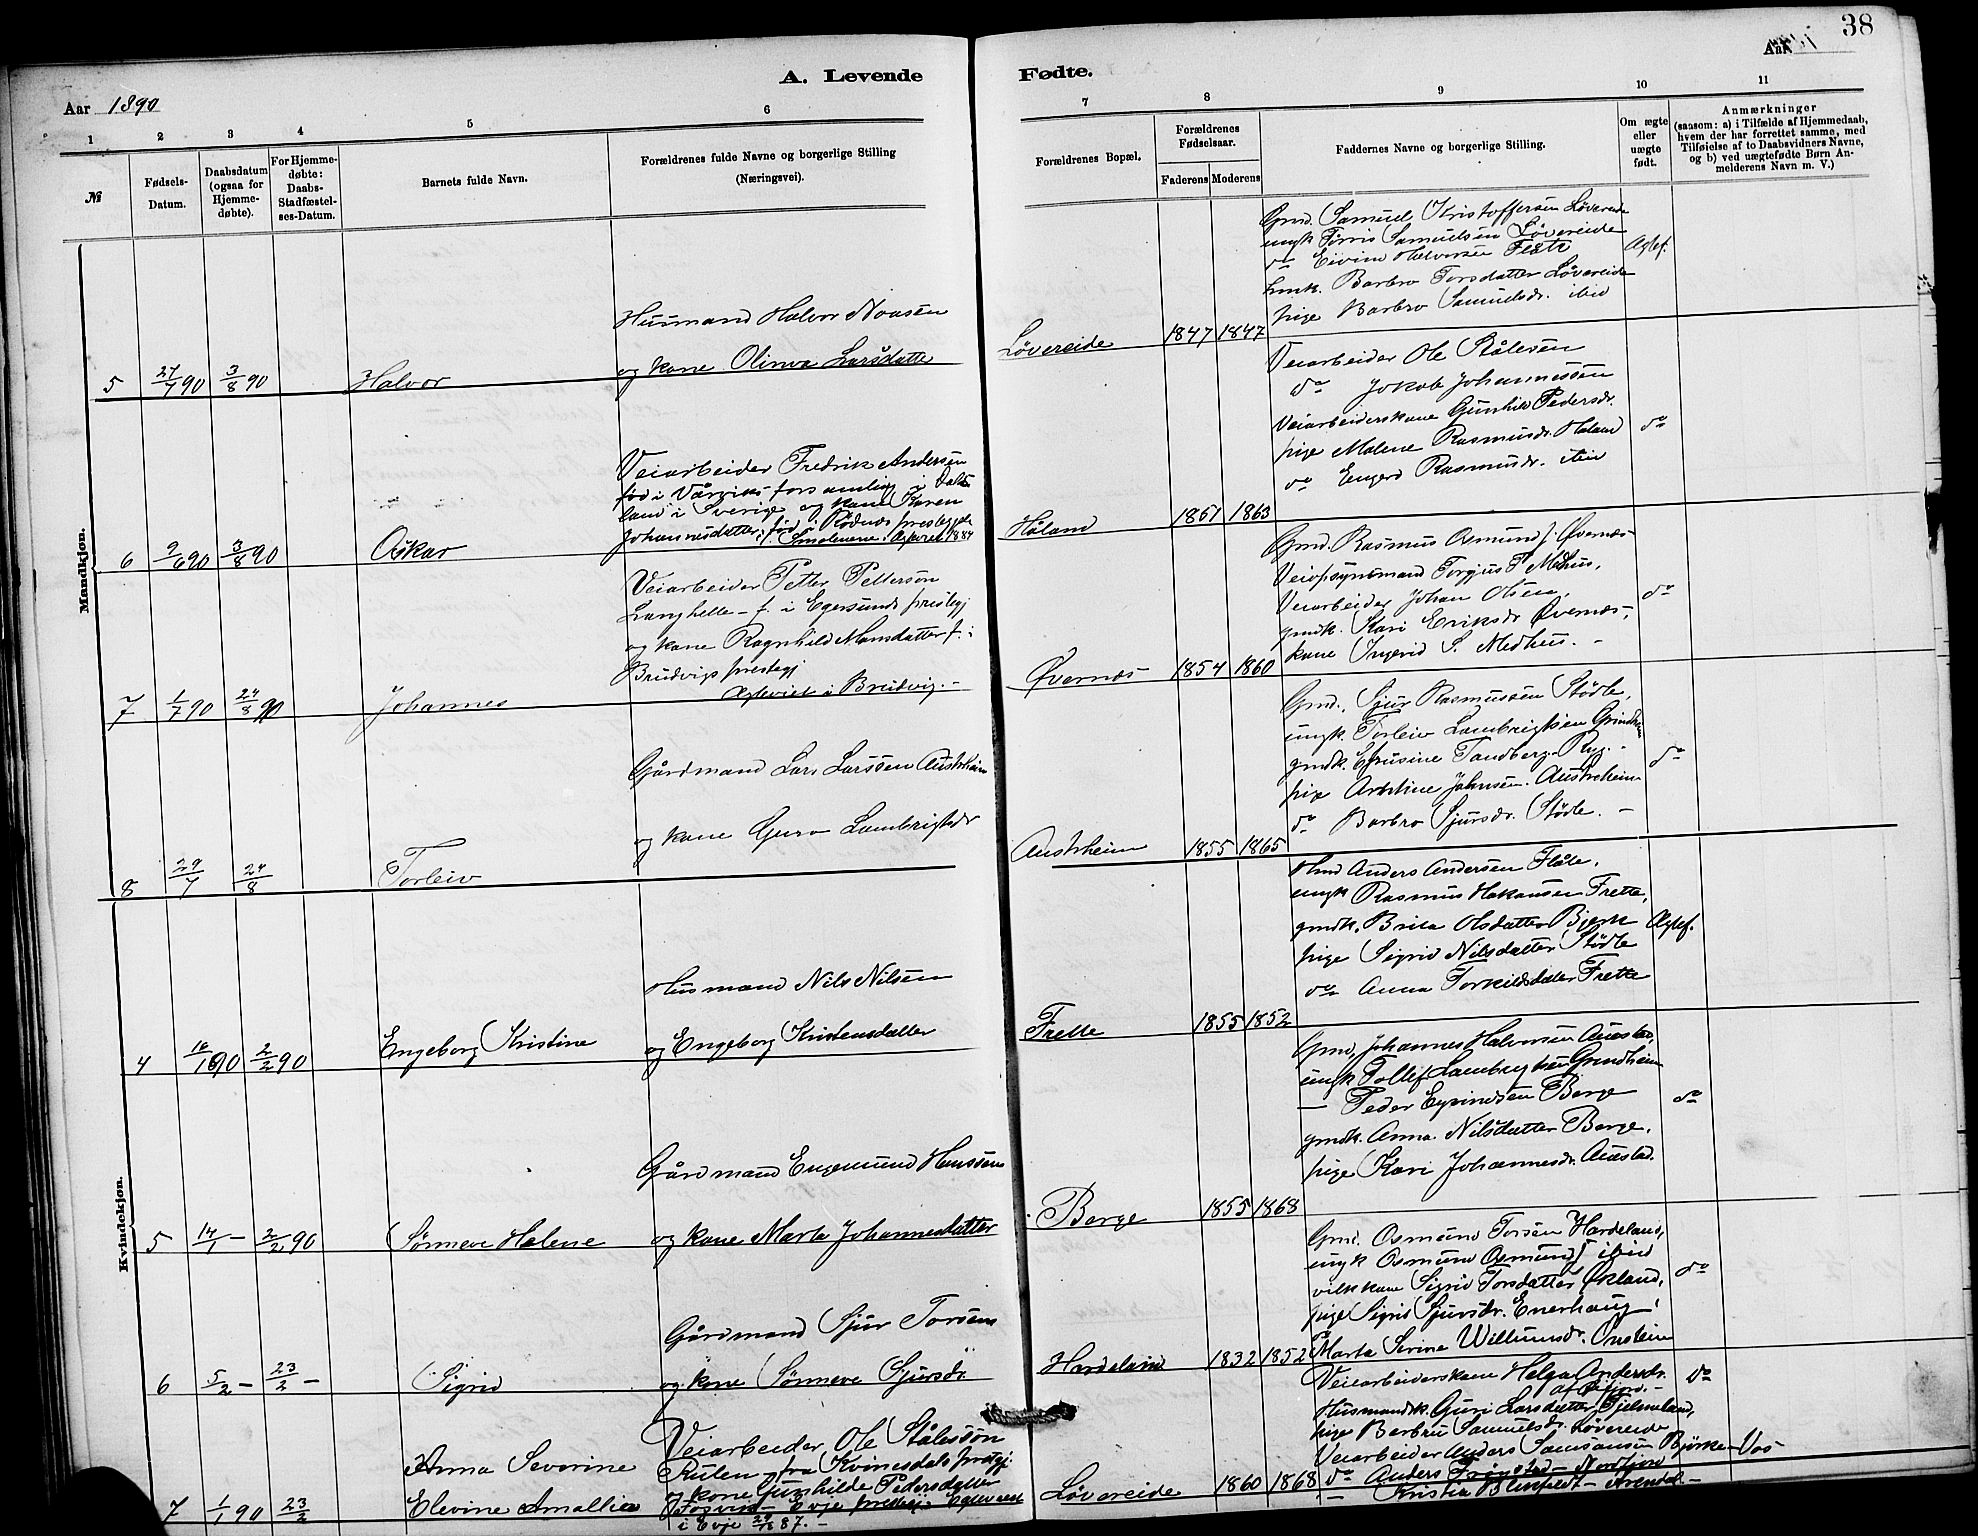 38
A. Levende Fødte.
Aar 1890
Aar
1 2 3 4 5 6 7 8 9 10 11
№
Fødsels-Datum.
Daabsdatum (ogsaa for Hjemme-døbte).
For Hjemme-døbte: Daabs-Stadfæstel-ses-Datum.
Barnets fulde Navn.
Forældrenes fulde Navne og borgerlige Stilling
(Næringsvei).
Forældrenes Bopæl.
Forældrenes Fødselsaar.
Faderens Moderens
Faddernes Navne og borgerlige Stilling.
Om ægte eller uægte født.
Anmærkninger
(saasom: a) i Tilfælde af Hjemmedaab,
hvem der har forrettet samme, med
Tilføielse af to Daabsvidners Navne,
og b) ved uægtefødte Børn An-
melderens Navn m. V.)
Mandkjøn.
5 27/7 90 3/8 90 Halvor
Husmand Halvor Noasen
og kone Olina Larsdatte
Løvereide 1847 1847
Gmd. Samuel Kristoffersen Løvereide
ungk Tørris Samuelsen Løvereide
do Eivind Halvorsen Flåte
hmk. Barbro Torsdatter Løvereide
pige Barbro Samuelsdr. ibid
Ægtef.
6 9/6 90 3/8 90 Oskar
Veiarbeider Fredrik Andersen
fød i Vårviks forsamling i Dals
land i Sverige og kone Karen
Johannesdatter, fød i Rødnæs prestegjeld
Smålenene. Ægteviet 1884
Håland 1861 1863
Veiarbeider Ole Stålesen
do Jakob Johannessen
Veiarbeiderskone Gunhild Pedersdr.
pige Malene Rasmusdr. Håland
do Engerd Rasmusdr. ibid
do
7 1/7 90 24/8 90 Johannes
Veiarbeider Petter Pettersøn
Langhelle - f. i Egersunds prestegj
og kone Ragnhild Monsdatter f. i
Brudvigs prestegj
Ægteviet i Bruvig. -
Øvernæs 1854 1860
Gmd. Rasmus Osmundsen Øvernæs
Veiopsynsmand Torgjus T Medhus,
Veiarbeider Johan Olsen,
gmdk. Kari Eriksdr Øvernæs,
kone Ingerid S. Medhus. -
do
8 29/7 24/8 Torleiv
Gårdmand Lars Larssen Austrheim
og kone Guro Lambrigtsdr
Austrheim 1855 1865
Gmd. Sjur Rasmussen Stødle,
ungk. Torleiv Lambrigtsen Grindheim
gmdk. Efrusine Tandberg. Ryg. -
pige Johnsen. Austreheim
do Barbro Sjursdr. Stødle. -
do
Kvindekjøn.
4 16/1 90 2/2 90 Engeborg Kristine
Husmand Nils Nilsen
og Engeborg Kristensdatter
Frette 1855 1852
Hmd Anders Andersen Flåte.
ungk Rasmus Hakonsen Frette,
gmdk. Brita Olsdatter Bjerk
pige Sigrid Nilsdatter Stødle
do Anna Torkildsdatter Frette
Ægtef.
5 14/1 - 2/2 90 Sønneve Halene
Gårdmand Engemund Hanssen
og kone Marta Johannesdatter
Berge 1855 1868
Gmd, Johannes Halvorsen Austad,
ungk Tollef Lambrigtsen Grindheim
— Peder Eyvindsen Berge
gmdk. Anna Nilsdatter Berge.
pige Kari Johannesdr. Austad.
do
6 5/2 - 23/2 - Sigrid
Gårdmand Sjur Torsen
og kone Sønneve Sjursdr.
Hardeland 1832 1852
Gmd. Osmund Torsen Hardeland,
ungk Osmund Osmunds. ibid
vilkkone Sigrid Torsdatter Økland,
pige Sigrid Sjursdr. Enerhaug,
Marta Serine Willumsdr. Onsteim
do
7 1/1 90 23/2 Anna Severine
Elevine Amallia
Veiarbeider Ole Stålessøn
Rulen fra Kvinesdals prstgj.
og kone Gunhilde Pedersdatter
Fosvind - Evje prestegj. Egteviet
i Evje 87. -
Løvereide 1860 1868
Veiarbeiderskone Helga Andersdr.
Husmandk. Guri Larsdatter Fjelmeland,
pige Barbru Samuelsdr. Løvereide
Veiarbeider Anders Samsonsen Bjørke - Vos
do Anders - Nordfjord
— Kristia - Arendal -
do